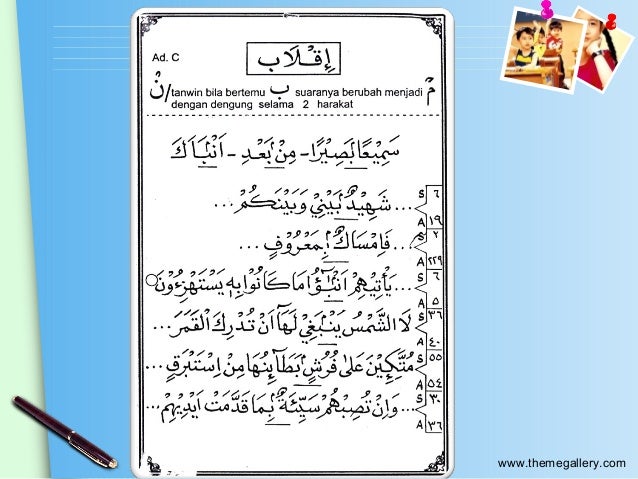 Ad. C
إِقْلَابْ
نْ/tanwin bila bertemu ب suaranya berubah menjadi مْ
dengan dengung selama 2 harakat
سَمِيْعًا بَصِيْرًا - مِنْ بَعْدِ - اَنْبَاَكَ
...شَهِيْدٌ بَيْنِيْ وَبَيْنَكُمْ... S ٦
A ١٩
...فَاِمْسَاكٌ بِمَعْرُوْفٍ... S ٢
A ٢٢٩
...يَأْتِيْهِمْ اَنْبٰٓؤُا مَا كَانُوْا بِهٖ يَسْتَهْزِءُوْنَ S ٦
A ٥
لَا الشَّمْسُ يَنْۢبَغِيْ لَهَآ اَنْ تُدْرِكَ الْقَمَرَ... S ٣٦
A ٤٠
مُتَّكِـِٕيْنَ عَلٰى فُرُشٍ بَطَآىِٕنُهَا مِنْ اِسْتَبْرَقٍ... S ٥٥
A ٥٤
...وَاِنْ تُصِبْهُمْ سَيِّئَةٌ بِمَا قَدَّمَتْ اَيْدِيْهِمْ... S ٣٠
A ٣٦
www.themegallery.com